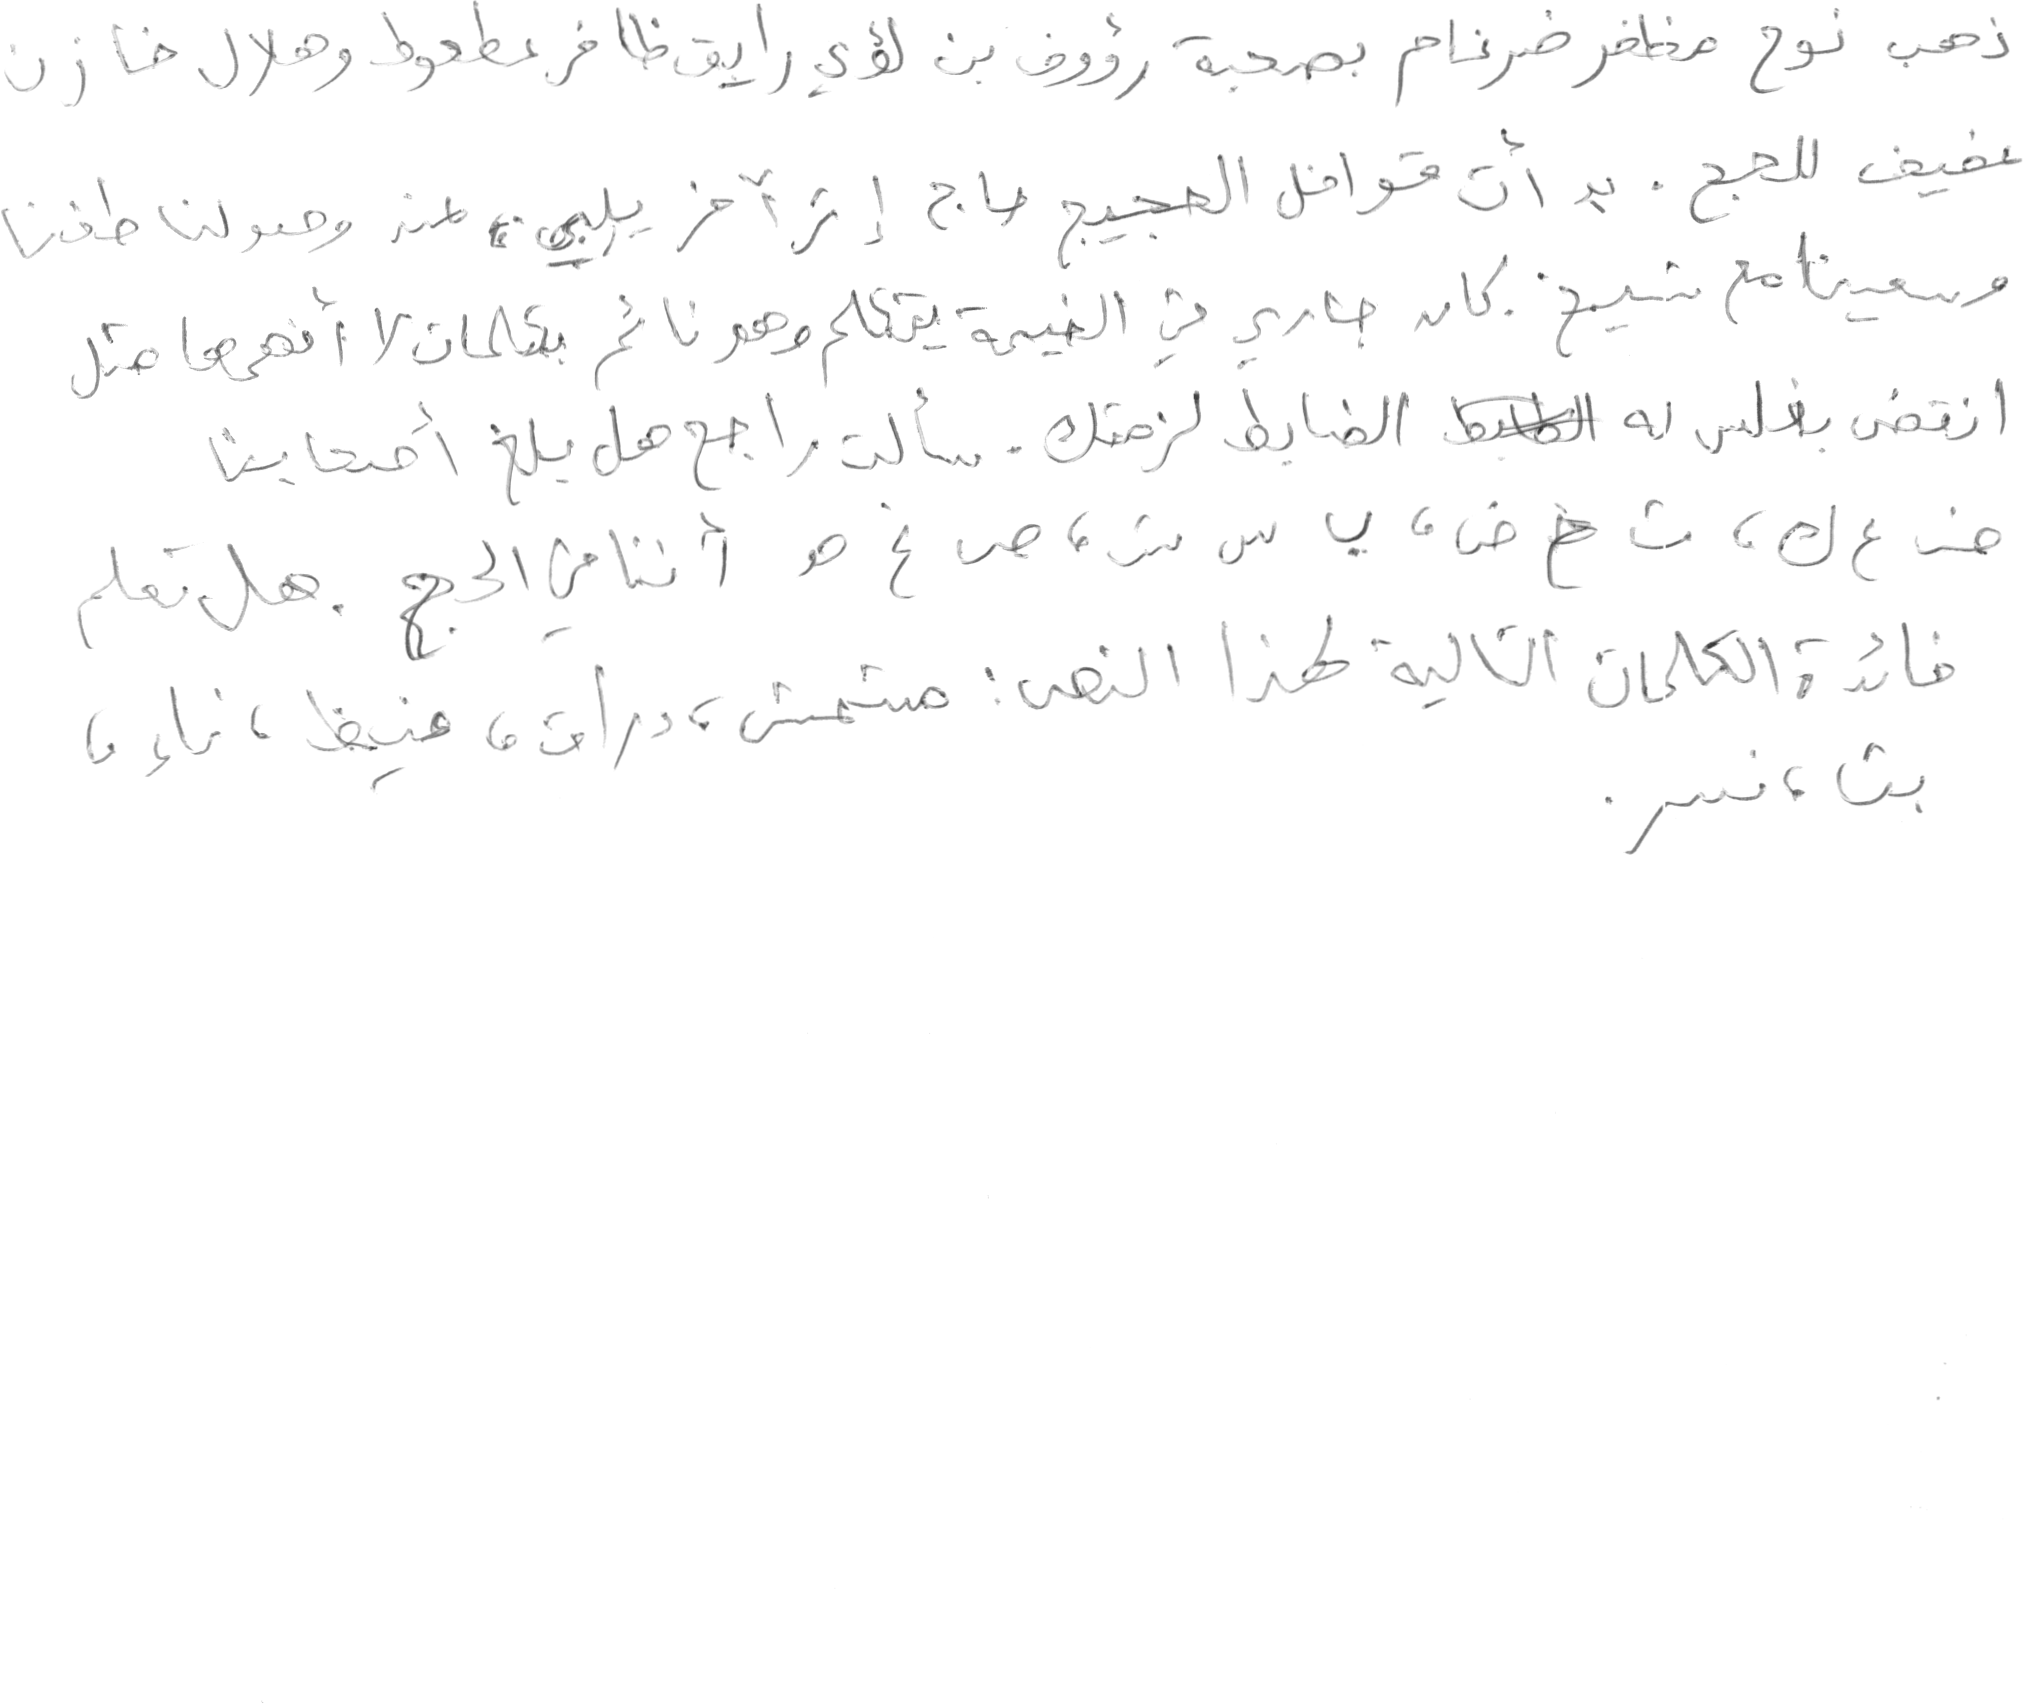 ذهب نوح مظفر ضرغام بصحبة رؤوف بن لؤي رايق ظافر عطعوط وهلال خازن
عفيف للحج. بد أت قوافل الحجيج حاج إثر آخر يلبي، عند وصولنا طفنا
وسعينا مع شيخ. كان جاري في الخيمة يتكلم وهو نائم بكلمات لا أفهمها مثل
انقض بغلس له الضابط لزمتك. سألت راجح هل بلغ أصحابنا
ض ع ك، ث خ ض، ب س ش، ص غ هو أننا في الحج. هل تعلم
فائدة الكلمات التالية لهذا النص: مشمش، درأت، غيظ، ناء،
بث، نسر.